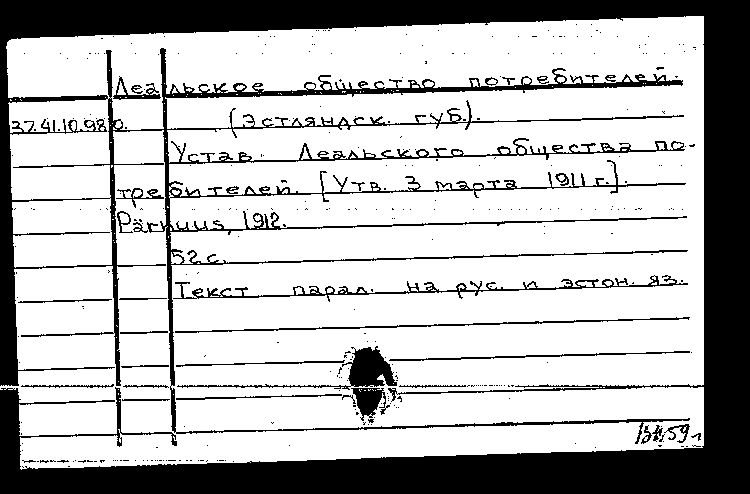 Леальское общество потребителей.
37.41.10.98 0. (Эстляндск. губ.).
Устав Леальского общества по-
требителей. [Утв. 3 марта 1911 г.].
Pärnuus, 1912.
52 с.
Текст парал. на рус. и эстон. яз.